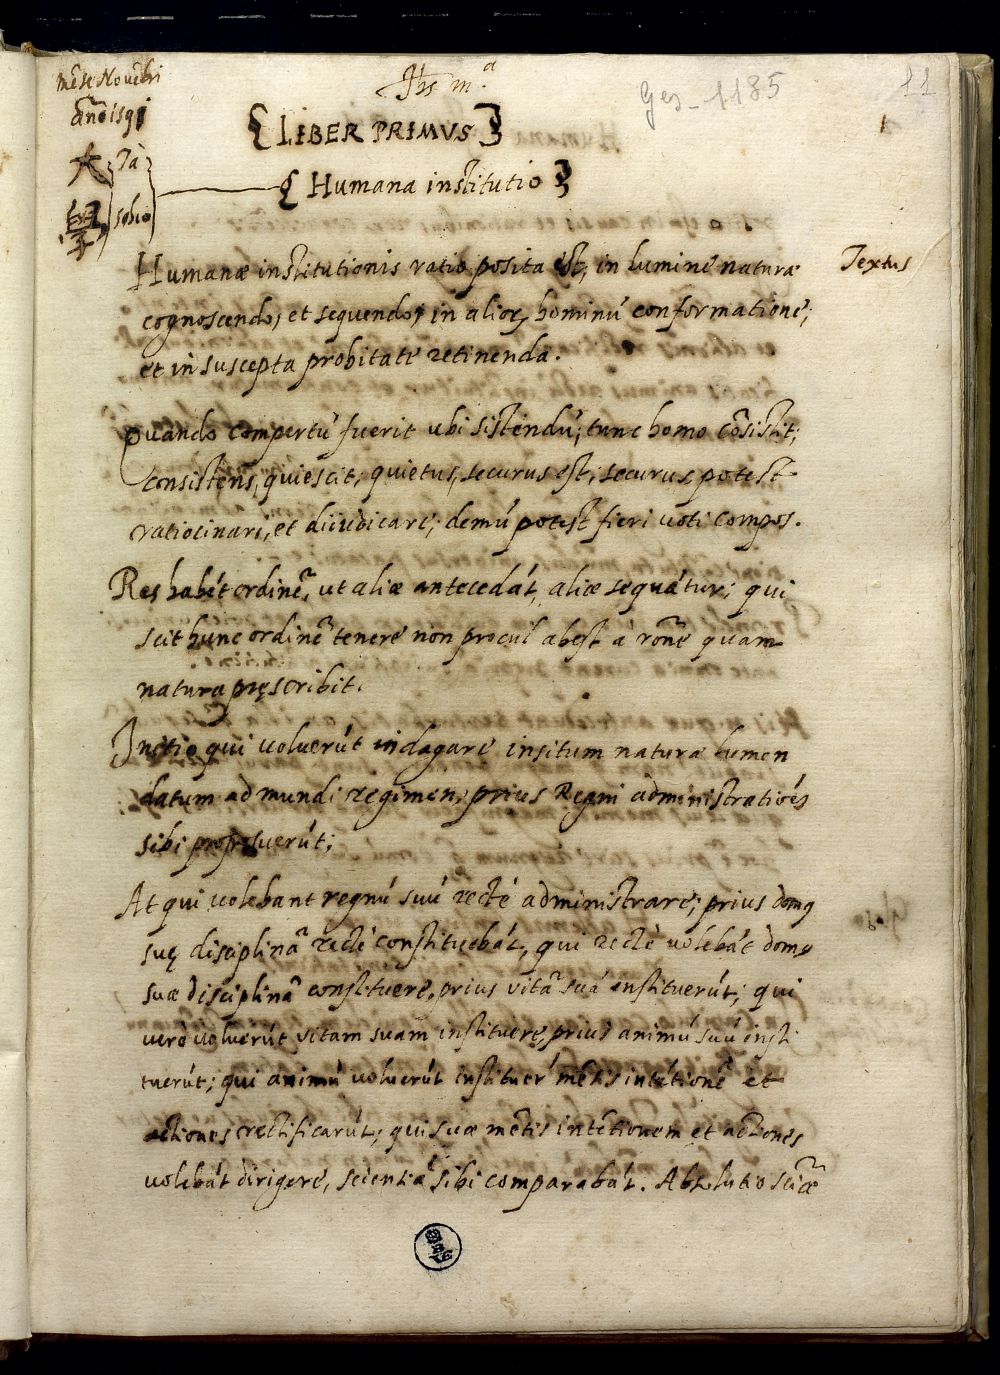 mẽse Nouẽbri
ãno 1591
Jhs mᵃ
Ges-1185
11
1
{LIBER PRIMVS}
大 Tà
學 schio
{Humana institutio}
Humanæ institutionis ratio posita est, in lumine naturæ
Textus
cognoscendo, et sequendo, in alior, hominũ conformatione;
et in suscepta probitate retinenda.
Quando compertũ fuerit ubi sistendũ, tunc homo cõsistit;
consistens, quiescit, quietus, securus est, securus potest
ratiocinari, et diiudicare, demũ potest fieri voti compos.
Res habẽt ordinẽ, ut aliæ antecedãt, aliæ sequãtur; qui
scit hunc ordinẽ tenere non procul abest à rõne quam
natura pręscribit.
Initio qui voluerũt indagare insitum naturæ lumen
datum ad mundi regimen, prius Regni administratiões
sibi proposuerũt;
At qui volebant regnũ suũ rectè administrare, prius domꝰ
suę disciplinã rectè constituebãt, qui rectè volebãt domꝰ
suæ disciplinã constituere, prius vitã suã instituerũt; qui
verò voluerũt vitam suam instituere, prius animũ suũ insti
tuerũt; qui animũ voluerũt instituer' mẽtis intẽtionẽ et
actiones rectificarũt; qui suæ mẽtis intẽtionem et actiones
volebãt dirigere, scientiã sibi comparabãt. Absolutio sciẽæ